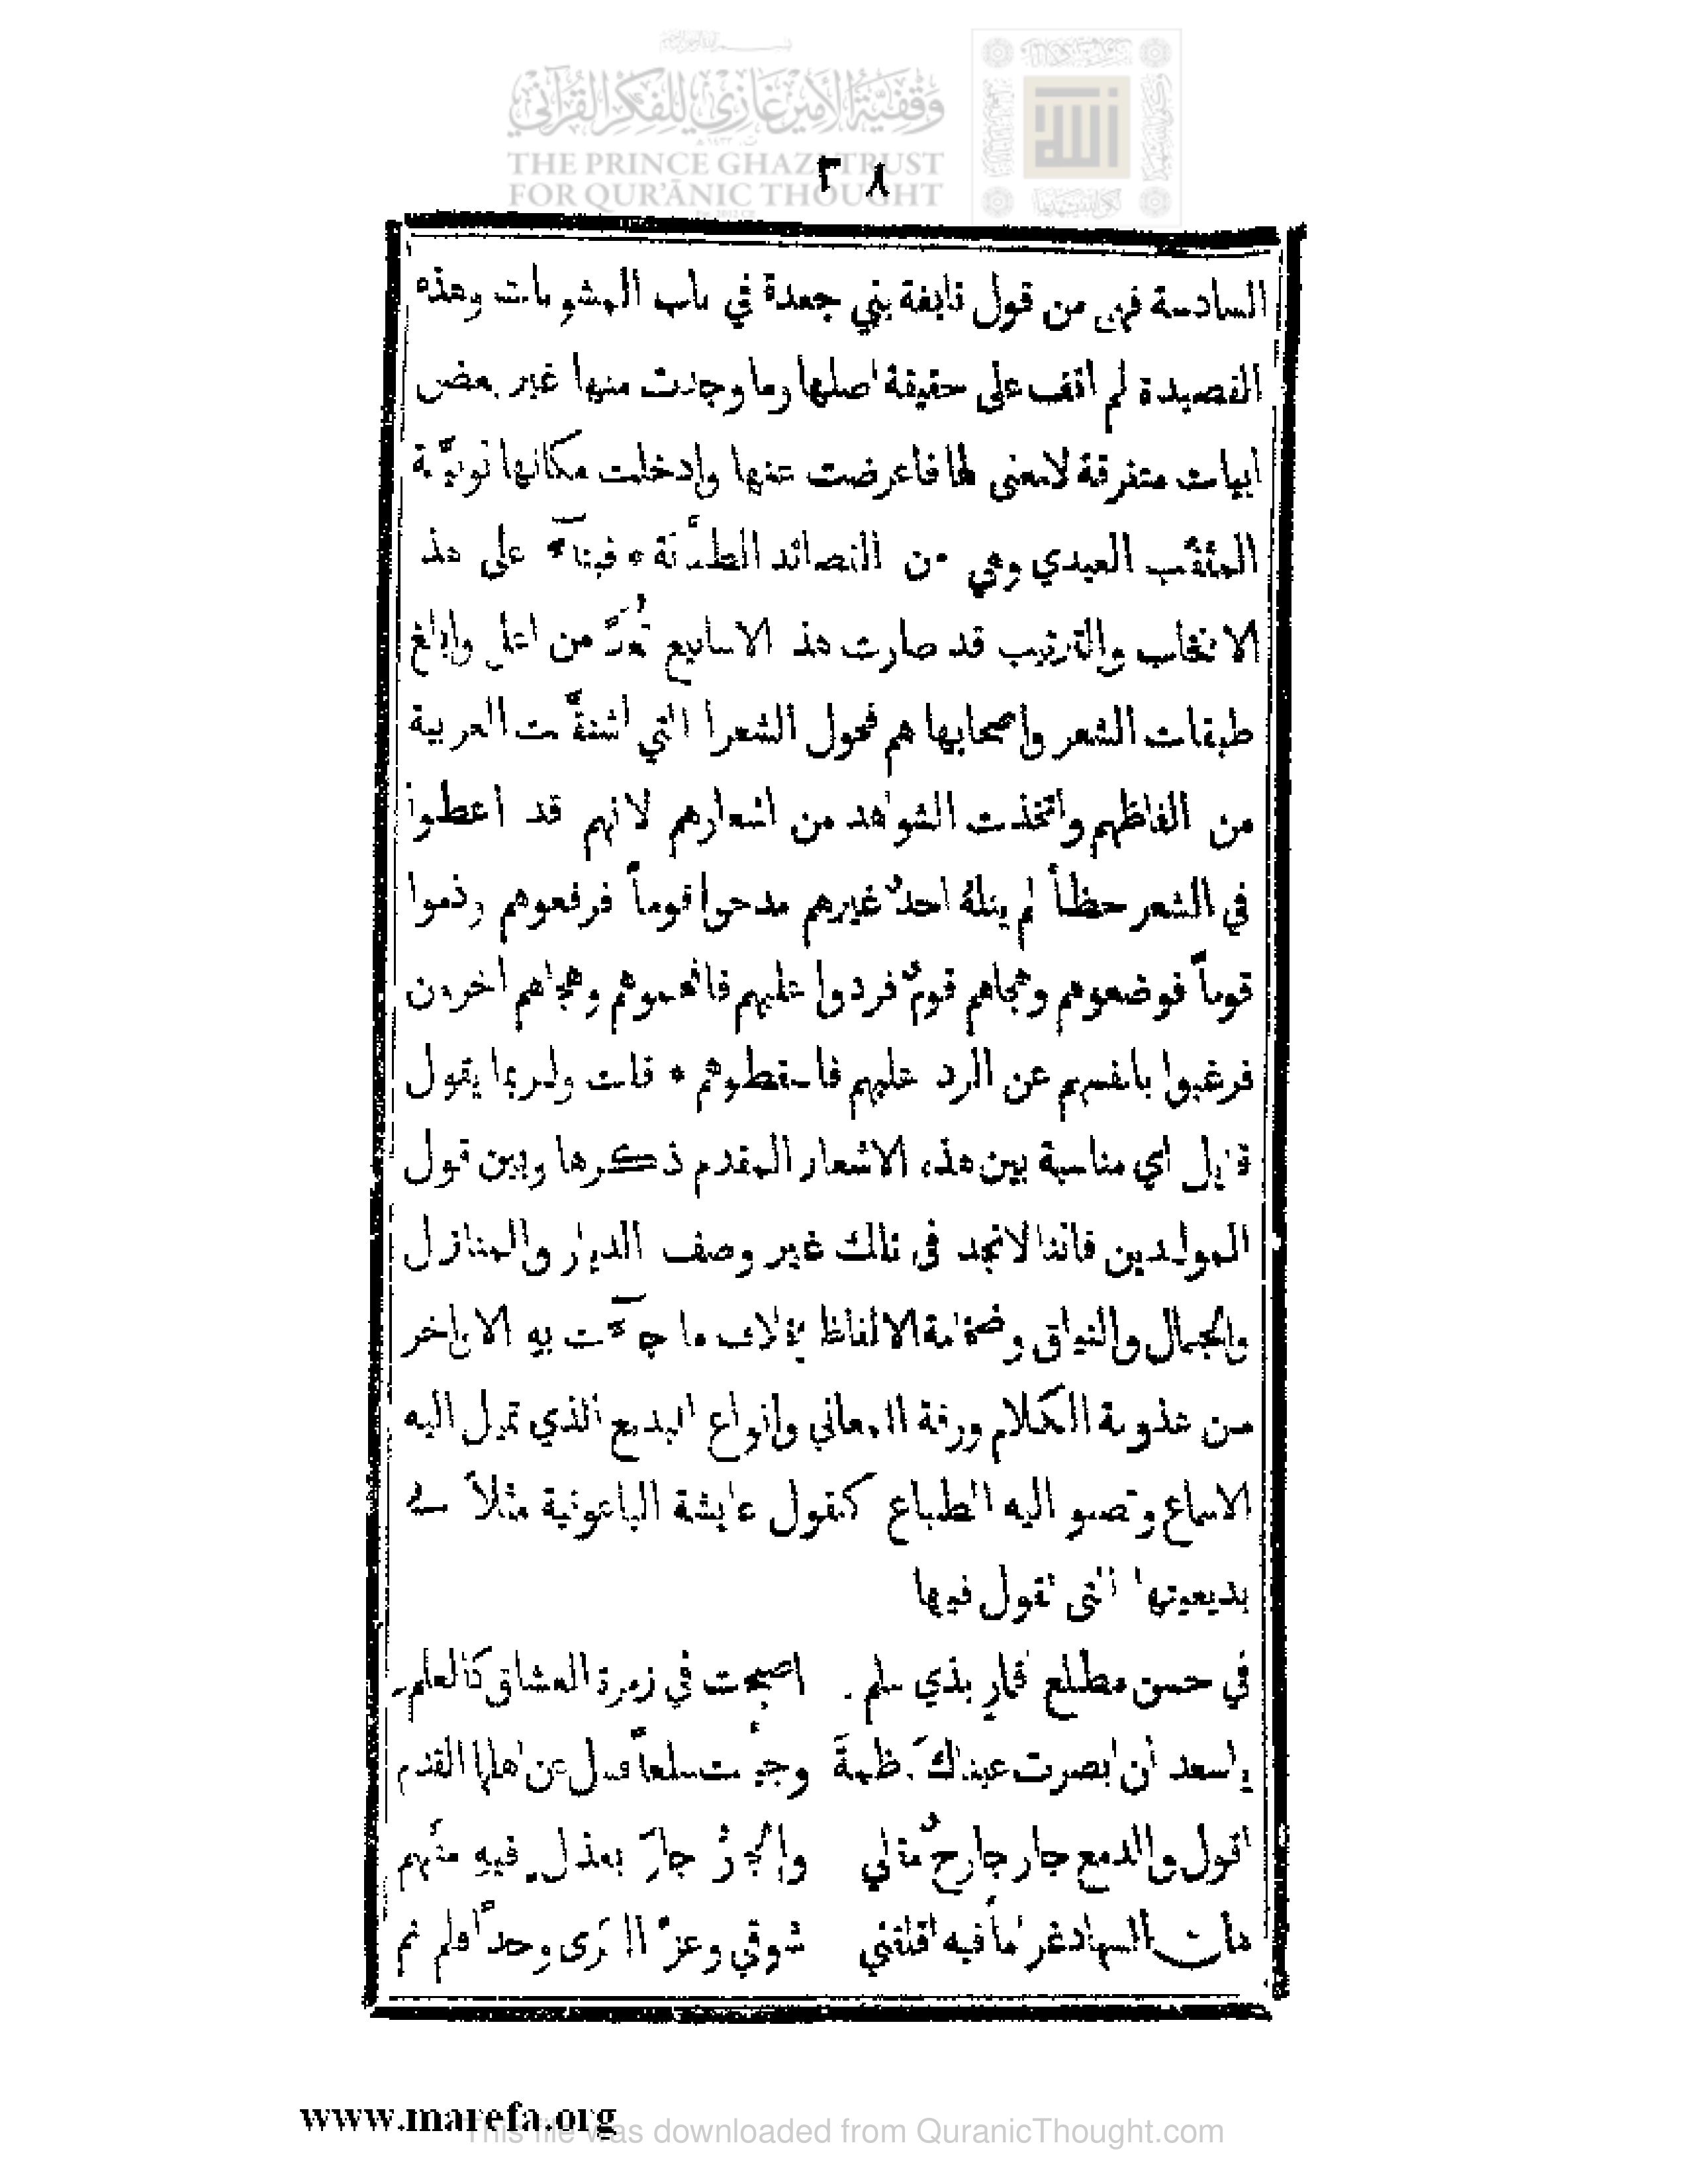 وقفية الأمير غازي للفكر القرآني
THE PRINCE GHAZI TRUST
FOR QUR'ĀNIC THOUGHT
٣٨
السادسة فهي من قول نابغة بني جعدة في باب المشوبات وهذه
القصيدة لم اقف على حقيقة اصلها وما وجدت منها غير بعض
ابيات متفرقة لامعنى لها فاعرضت عنها وادخلت مكانها نونيَّة
المثقب العبدي وهي من القصائد الطنَّانة * فبناءً على هذ
الانتخاب والترتيب قد صارت هذ الاسابيع تُعَدّ من اعلى وابلغ
طبقات الشعر واصحابها هم فحول الشعرا التي اشتقَّت العربية
من الفاظهم واتخذت الشواهد من اشعارهم لانهم قد اعطوا
في الشعر حظاً لم ينلهُ احدٌ غيرهم مدحوا قوماً فرفعوهم وذموا
قوماً فوضعوهم وهجاهم قومٌ فردوا عليهم فافحموهم وهجاهم اخرون
فرغبوا بانفسهم عن الرد عليهم فاسقطوهم * قلت ولربما يقول
قايل اي مناسبة بين هذه الاشعار المقدم ذكرها وبين قول
المولدين فاننا لانجد في تلك غير وصف الديار والمنازل
والجمال والنياق وضخامة الالفاظ بخلاف ما جآءت به الاواخر
من عذوبة الكلام ورقة المعاني وانواع البديع الذي تميل اليه
الاسماع وتصبو اليه الطباع كقول عايشة الباعونية مثلاً في
بديعيتها التي تقول فيها
في حسن مطلع اقمارٍ بذي سلم اصبحت في زمرة العشاق كالعلم
ياسعد ان ابصرت عيناكَ كاظمةَ وجئت سلعاً فسل عن اهلها القدم
اقول والدمع جار جارحٌ مقلي والجارُ جارَ بعذلٍ فيهِ متهم
شوقي وعزَّ الكرى وجداً فلم نم
www.marefa.org
This file was downloaded from QuranicThought.com